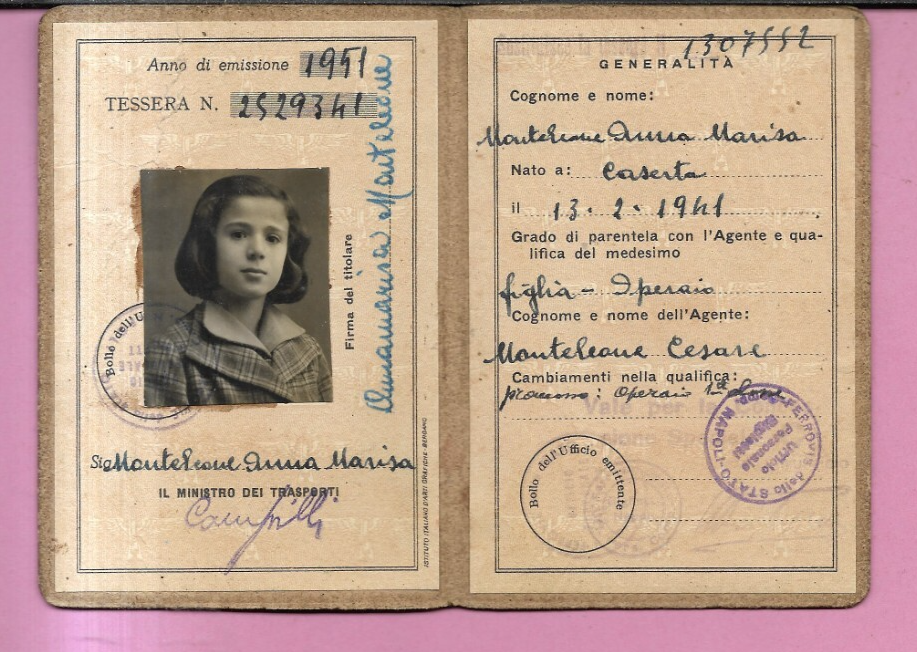 Anno di emissione 1951
TESSERA N. 2529341
Annamarisa Monteleone
Firma del titolare
Bollo dell'U
Sig Monteleone Anna Marisa
IL MINISTRO DEI TRASPORTI
ISTITUTO ITALIANO D'ARTI GRAFICHE - BERGAMO
N 1307552
GENERALITÀ
Cognome e nome:
Monteleone Anna Marisa
Nato a: Caserta
il 13.2.1941
Grado di parentela con l'Agente e qua-
lifica del medesimo
figlia - Operaio
Cognome e nome dell'Agente:
Monteleone Cesare
Cambiamenti nella qualifica:
promosso: Operaio 1ª
Vale per
Bollo dell'Ufficio emittente
FERROVIE dello STATO
NAPOLI
Ufficio
Personale